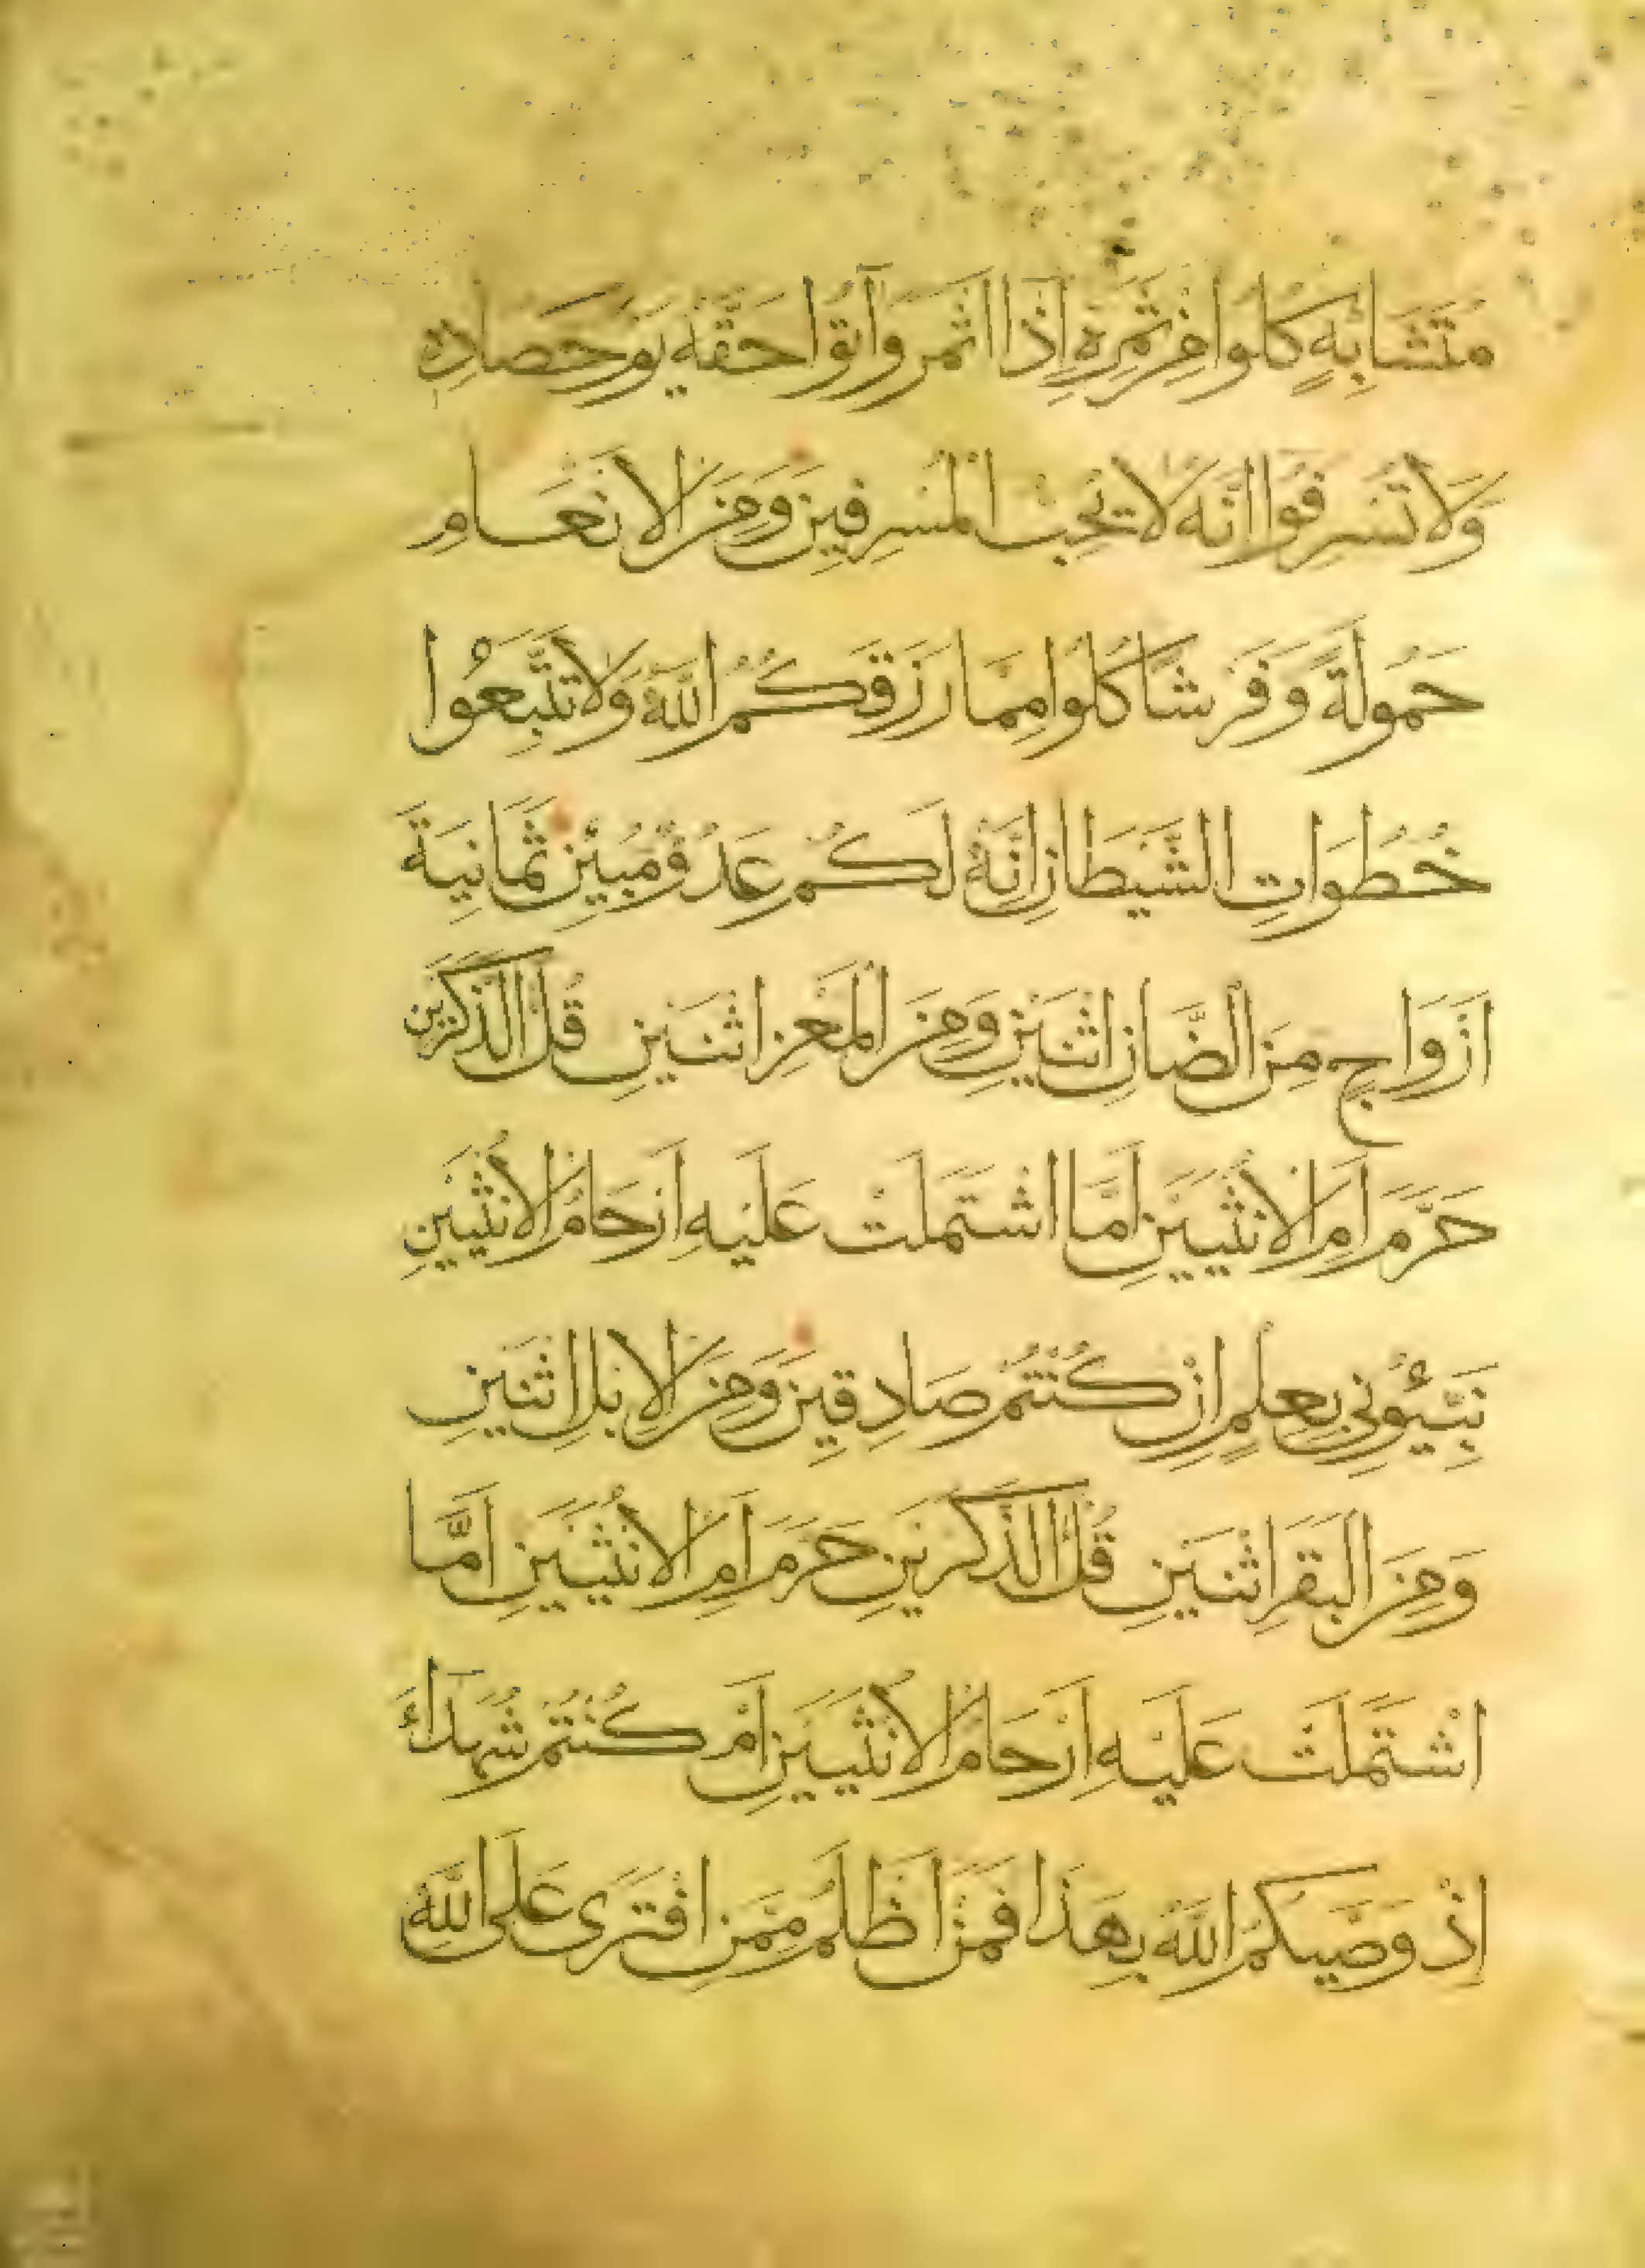 مُتَشَابِهٍ كُلُوا مِنْ ثَمَرِهِ اِذَا اَثْمَرَ وَآتُوا حَقَّهُ يَوْمَ حَصَادِهِ
وَلَا تُسْرِفُوا اِنَّهُ لَا يُحِبُّ الْمُسْرِفِينَ وَمِنَ الْاَنْعَامِ
حَمُولَةً وَفَرْشًا كُلُوا مِمَّا رَزَقَكُمُ اللّٰهُ وَلَا تَتَّبِعُوا
خُطُوَاتِ الشَّيْطَانِ اِنَّهُ لَكُمْ عَدُوٌّ مُبِينٌ ثَمَانِيَةَ
اَزْوَاجٍ مِنَ الضَّاْنِ اثْنَيْنِ وَمِنَ الْمَعْزِ اثْنَيْنِ قُلْ آلذَّكَرَيْنِ
حَرَّمَ اَمِ الْاُنْثَيَيْنِ اَمَّا اشْتَمَلَتْ عَلَيْهِ اَرْحَامُ الْاُنْثَيَيْنِ
نَبِّئُونِي بِعِلْمٍ اِنْ كُنْتُمْ صَادِقِينَ وَمِنَ الْاِبِلِ اثْنَيْنِ
وَمِنَ الْبَقَرِ اثْنَيْنِ قُلْ آلذَّكَرَيْنِ حَرَّمَ اَمِ الْاُنْثَيَيْنِ اَمَّا
اشْتَمَلَتْ عَلَيْهِ اَرْحَامُ الْاُنْثَيَيْنِ اَمْ كُنْتُمْ شُهَدَاءَ
اِذْ وَصّٰيكُمُ اللّٰهُ بِهَذَا فَمَنْ اَظْلَمُ مِمَّنِ افْتَرَى عَلَى اللّٰهِ